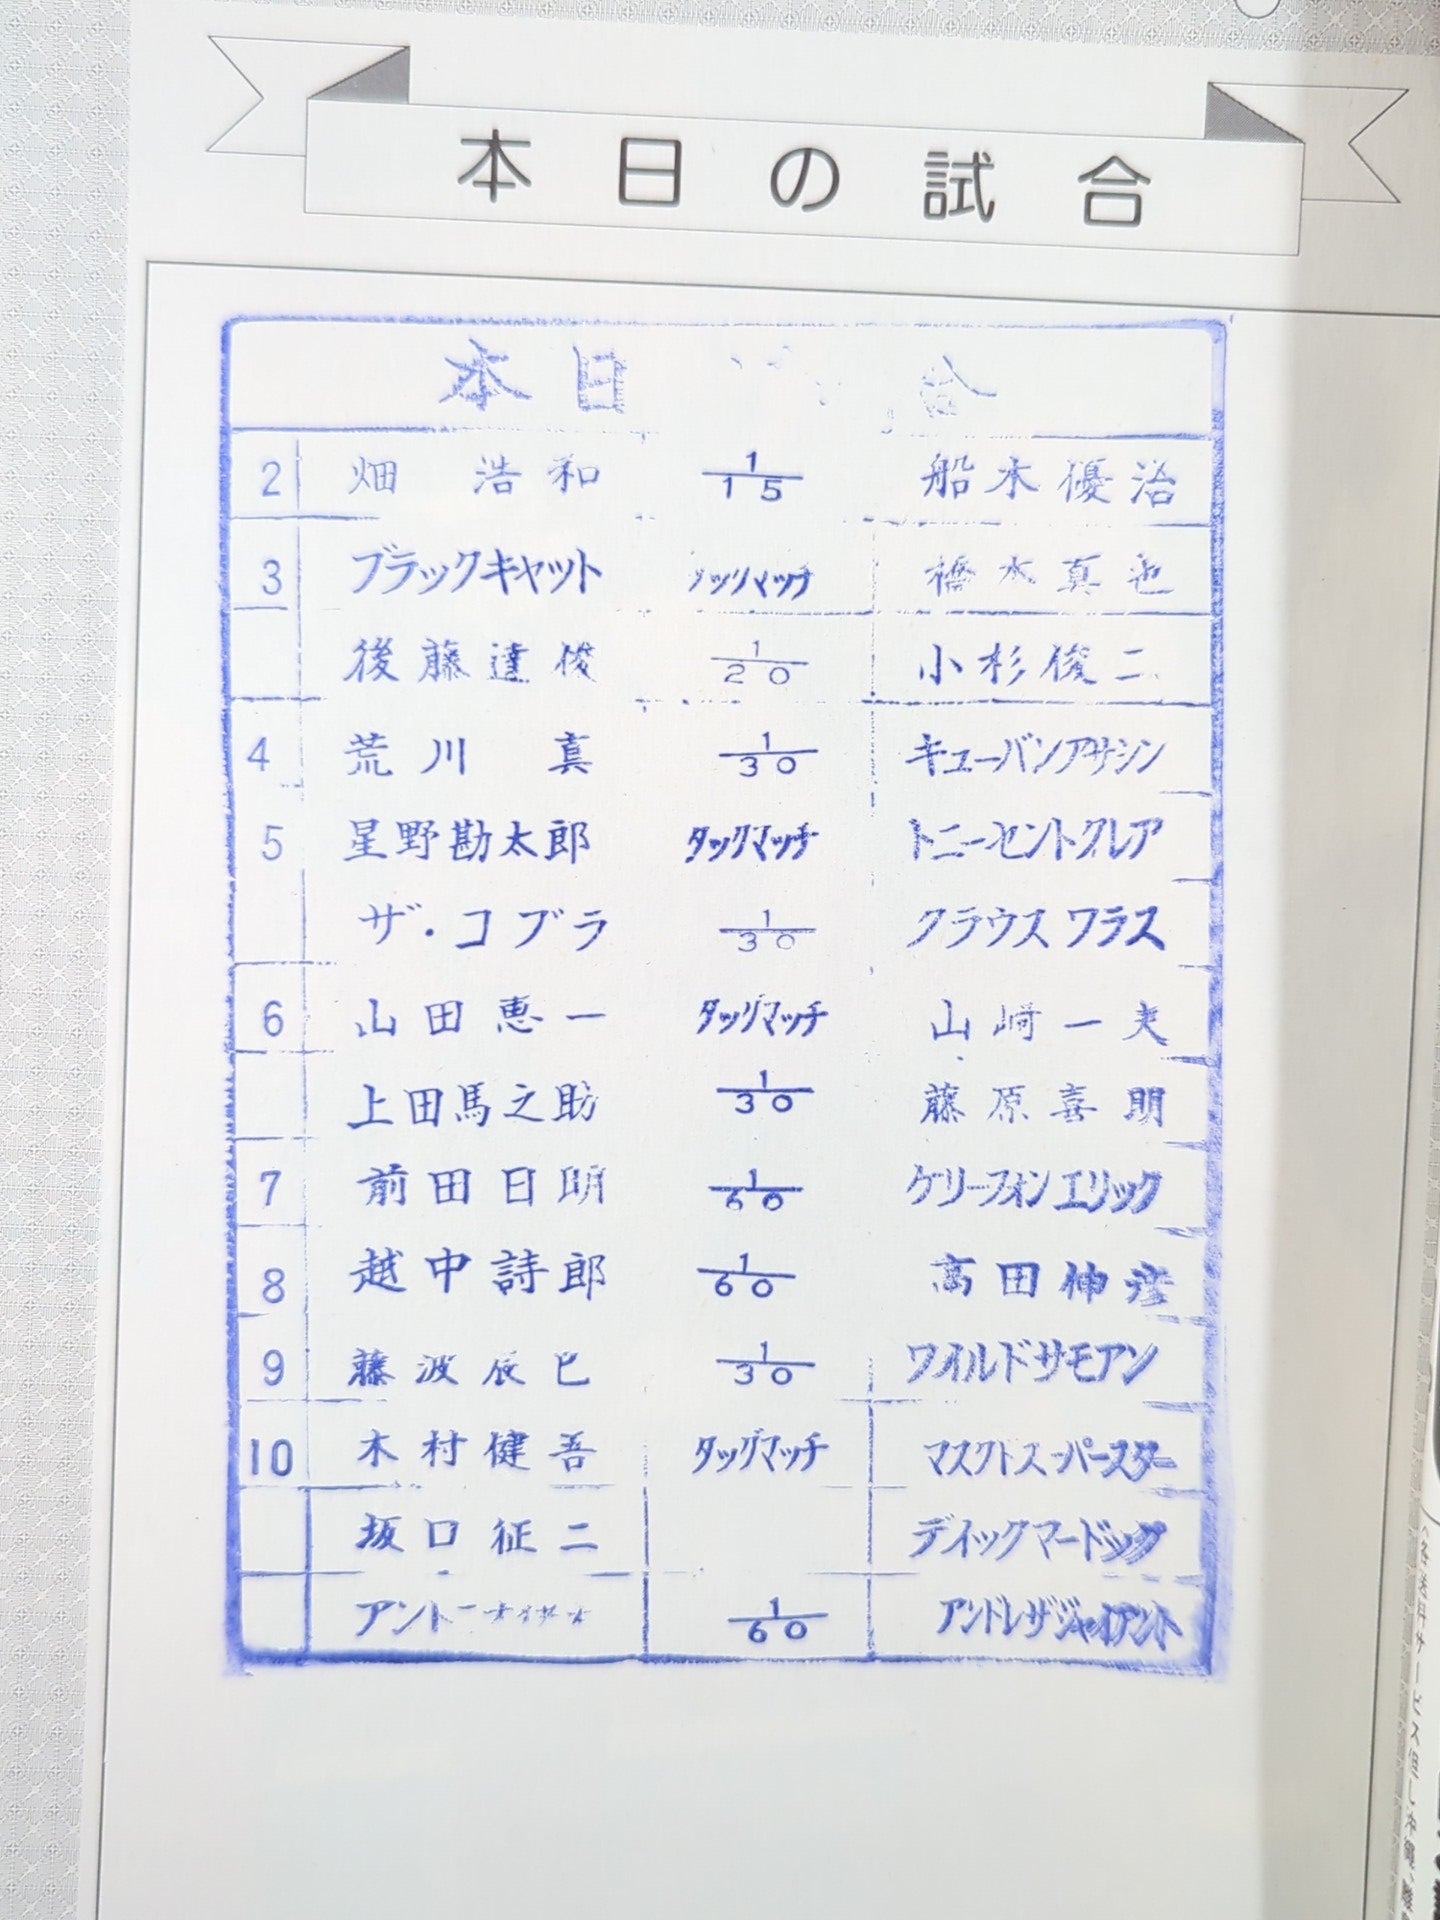 本日の試合
本日 合
2 畑 浩和 1/15 船木優治
3 ブラックキャット タッグマッチ 橋本真也
後藤達俊 1/20 小杉俊二
4 荒川 真 1/30 キューバンアサシン
5 星野勘太郎 タッグマッチ トニーセントクレア
ザ・コブラ 1/30 クラウスワラス
6 山田恵一 タッグマッチ 山崎一夫
上田馬之助 1/30 藤原喜明
7 前田日明 1/60 ケリーフォンエリック
8 越中詩郎 1/60 高田伸彦
9 藤波辰巳 1/30 ワイルドサモアン
10 木村健吾 タッグマッチ マスクトスーパースター
坂口征二 ディックマードック
アントニオ猪木 1/60 アンドレザジャイアント